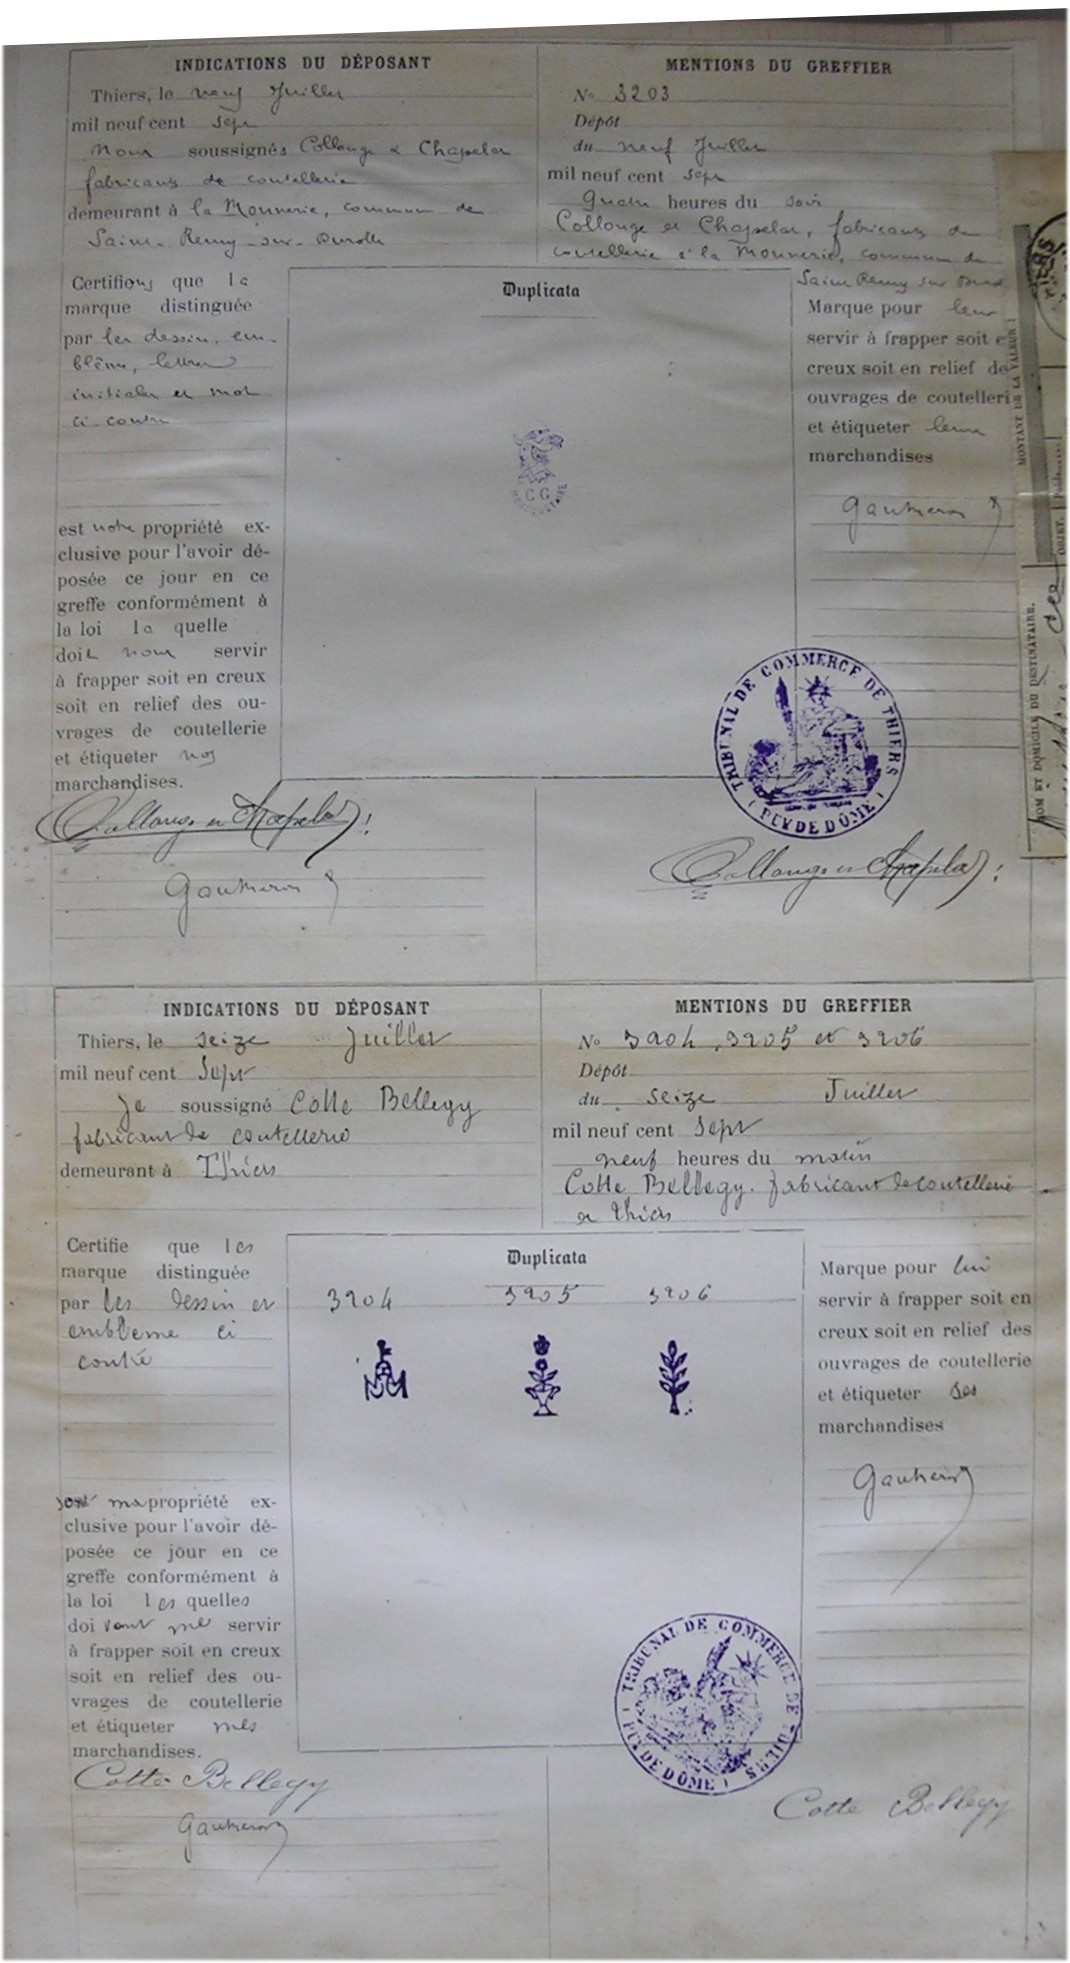 INDICATIONS DU DÉPOSANT
Thiers, le neuf Juillet
mil neuf cent sept
Nous soussignés Collonge & Chapelat
fabricants de coutellerie
demeurant à la Monnerie, commune de
Saint-Remy-sur-Durolle
MENTIONS DU GREFFIER
No 3203
Dépôt
du neuf Juillet
mil neuf cent sept
Quatre heures du soir
Collonge et Chapelat, fabricants de
coutellerie à la Monnerie, commune de
Saint Remy sur Durolle
Certifions que la
marque distinguée
par les dessin, em-
blême, lettres
initiales et mot
ci-contre
est notre propriété ex-
clusive pour l'avoir dé-
posée ce jour en ce
greffe conformément à
la loi la quelle
doit nous servir
à frapper soit en creux
soit en relief des ou-
vrages de coutellerie
et étiqueter nos
marchandises.
Collonge et Chapelat
Gautheron
Duplicata
C.G.
Marque pour leur
servir à frapper soit e
creux soit en relief de
ouvrages de coutelleri
et étiqueter leurs
marchandises
Gautheron
TRIBUNAL DE COMMERCE DE THIERS
(PUY DE DÔME)
Collonge et Chapelat
MONTANT DE LA VALEUR
OBJET.
NOM ET DOMICILE DU DESTINATAIRE.
INDICATIONS DU DÉPOSANT
Thiers, le seize Juillet
mil neuf cent Sept
Je soussigné Cotte Bellegy
fabricant de coutellerie
demeurant à Thiers
MENTIONS DU GREFFIER
No 3204, 3205 et 3206
Dépôt
du seize Juillet
mil neuf cent sept
neuf heures du matin
Cotte Bellegy. fabricant de coutellerie
a thiers
Certifie que les
marque distinguée
par les dessin et
embleme ci
contre
sont ma propriété ex-
clusive pour l'avoir dé-
posée ce jour en ce
greffe conformément à
la loi les quelles
doivent me servir
à frapper soit en creux
soit en relief des ou-
vrages de coutellerie
et étiqueter mes
marchandises.
Cotte Bellegy
Gautheron
Duplicata
3204 3205 3206
Marque pour lui
servir à frapper soit en
creux soit en relief des
ouvrages de coutellerie
et étiqueter ses
marchandises
Gautheron
TRIBUNAL DE COMMERCE DE THIERS
(PUY DE DÔME)
Cotte Bellegy